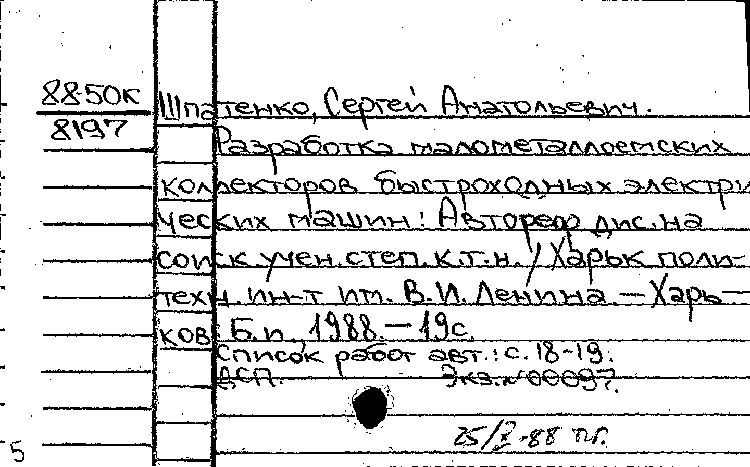 88-50к
8197
Шпатенко, Сергей Анатольевич.
Разработка малометаллоемских
коллекторов быстроходных электри
ческих машин: Автореф дис. на
соиск учен. степ. к.т.н. / Харьк поли-
техн. ин-т им. В.И. Ленина — Харь—
ков: Б.и, 1988. — 19с.
Список работ авт.: с. 18-19.
ДСП. Экз. № 00097.
25/X-88 пг.
5